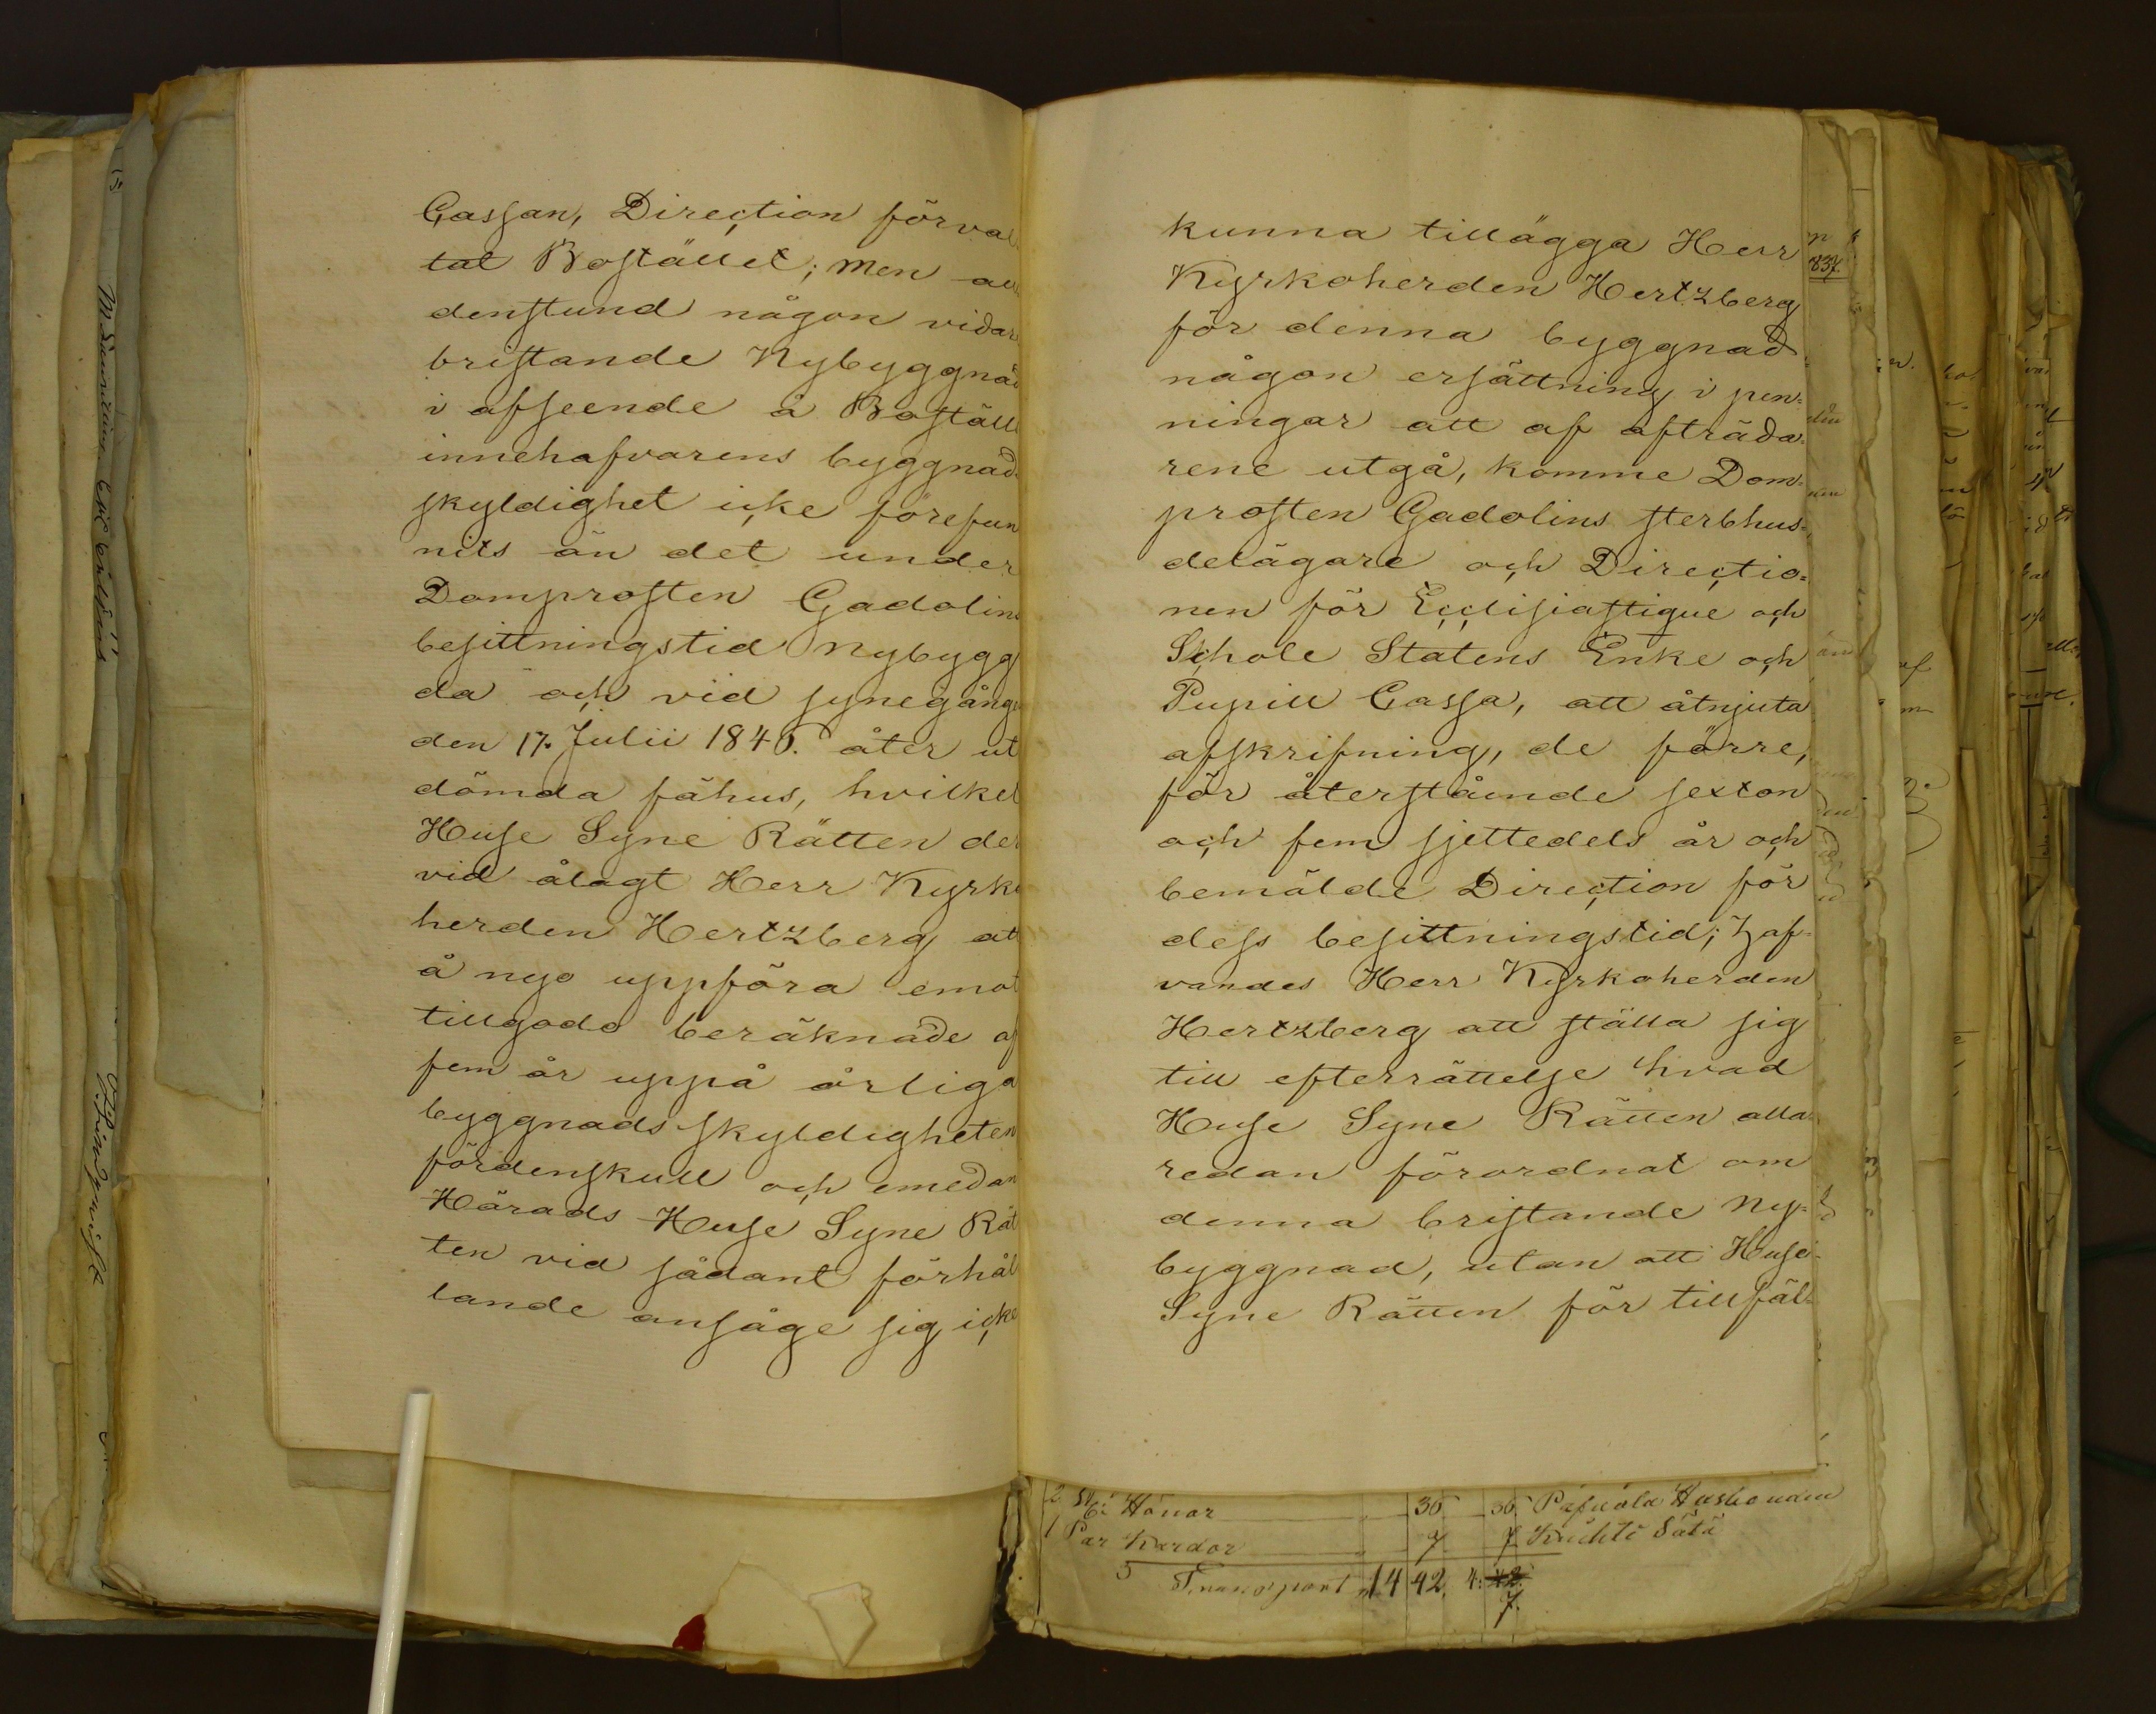 Cassan, Direction förval
tat Bostället; men all
denstund någon vidar
bristande Nybyggnad
i afseende å Boställ
innehafvarens byggnads
skyldighet icke förefun
nits än det under
Domprosten Gadolins
besittningstid nybygg
da och vid synegången
den 17. Julii 1846. åter ut
dömda fähus, hvilket
Huse Syne Rätten der
vid ålagt Herr Kyrko
herden Hertzberg att
å nyo uppföra emot
tillgodo beräknade af
fem år uppå årliga
byggnads skyldigheten
fördenskull och emedan
Härads Huse Syne Rät
ten vid sådant förhål
lande ansåge sig icke
kunna tillägga Herr
Kyrkoherden Hertzberg
för denna byggnad
någon ersättning i pen=
ningar att af afträda=
rene utgå, komme Dom=
prosten Gadolins sterbhus=
delägare och Directio=
nen för Ecclisiastique och
Schole Statens Enke och
Pupill Cassa, att åtnjuta
afskrifning, de förre,
för återstående sexton
och fem sjettedels år och
bemälde Direction för
dess besittningstid; haf=
vandes Herr Kyrkoherden
Hertzberg att ställa sig
till efterrättelse hvad
Huse Syne Rätten alla
redan förordnat om
denna bristande Ny=
byggnad, utan att Huse
Syne Rätten för tillfäl=
2 St: Hönor 36 36
1 Par Kardor 7 7
Transport 14 42 4: 42.
7.
837.